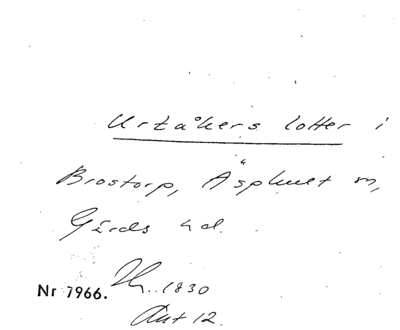 Urtåkers lotter i
Brostorp, Äsphult sn,
Gärds hd.
Nr 7966. 1830
Akt 12.